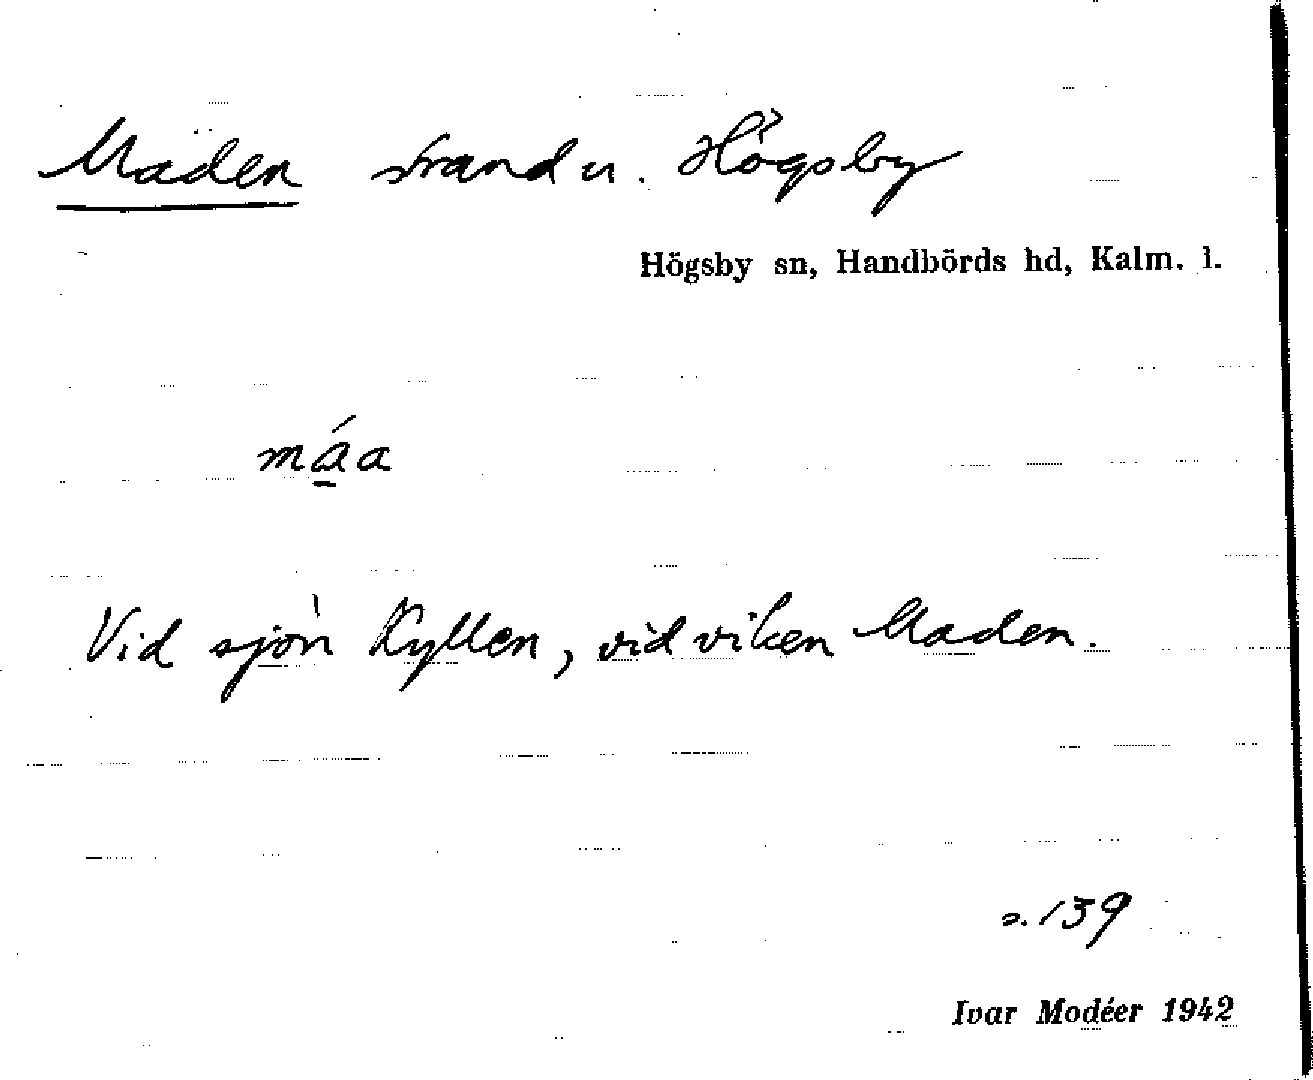 Maden strand u. Högsby
Högsby sn, Handbörds hd, Kalm. l.
máa
Vid sjön Kyllen, vid viken Maden.
s. 139
Ivar Modéer 1942